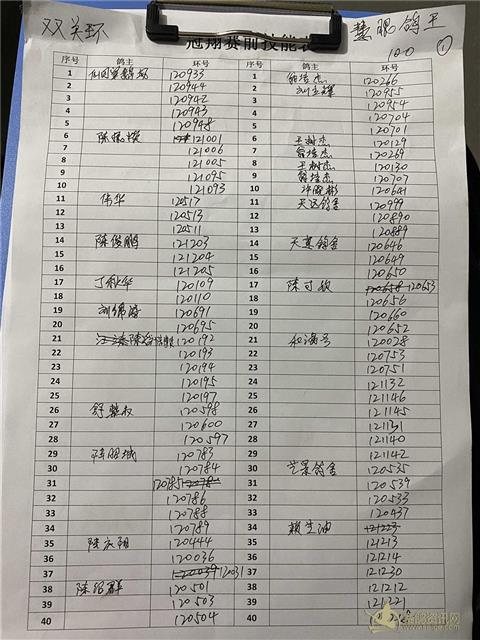 双关环
慧眼鸽王
冠翔赛前技能表
100 ①
序号 鸽主 环号 序号 鸽主 环号
1 120933 1 120266
2 120944 2 120955
3 120942 3 120954
4 120943 4 120704
5 120948 5 120701
6 121001 6 王树杰 120129
7 121006 7 120269
8 121005 8 王树杰 120130
9 121095 9 120707
10 121093 10 120641
11 伟华 120517 11 天逸鸽舍 120999
12 120513 12 120890
13 120511 13 120889
14 陈俊鹏 121203 14 天喜鸽舍 120646
15 121204 15 120649
16 121205 16 120650
17 丁秋华 120109 17 陈可敏 120653
18 120110 18 120656
19 120691 19 120660
20 120695 20 120652
21 120192 21 和满号 120028
22 120193 22 120753
23 120194 23 120751
24 120195 24 121132
25 120197 25 121146
26 舒整权 120598 26 121145
27 120600 27 121131
28 120597 28 121140
29 120783 29 121142
30 120784 30 艺景鸽舍 120535
31 120785 31 120539
32 120786 32 120533
33 120788 33 120437
34 120789 34 赖芝油 121223
35 陆庆朝 120444 35 121213
36 120036 36 121214
37 120031 37 121230
38 陈绍群 120501 38 121212
39 120503 39 121221
40 120504 40